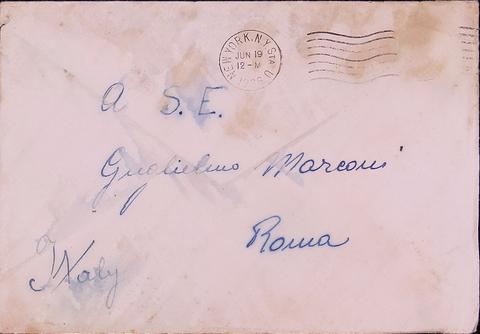 NEW YORK, N.Y. STA. U
JUN 19
12-M
A S. E.
Guglielmo Marconi
Roma
Italy